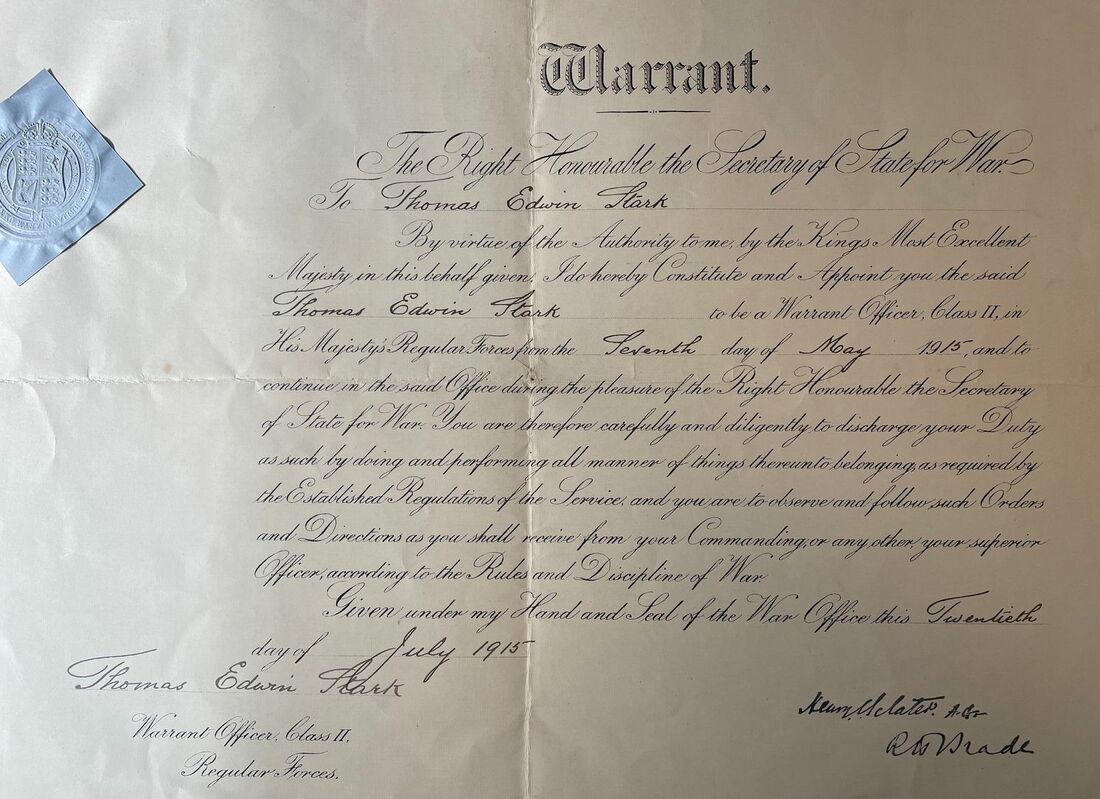 Warrant.
The Right Honourable the Secretary of State for War.
To Thomas Edwin Stark
By virtue of the Authority to me, by the Kings Most Excellent
Majesty in this behalf given, I do hereby Constitute and Appoint you the said
Thomas Edwin Stark to be a Warrant Officer, Class II, in
His Majesty's Regular Forces from the Seventh day of May 1915, and to
continue in the said Office during the pleasure of the Right Honourable the Secretary
of State for War. You are therefore carefully and diligently to discharge your Duty
as such by doing and performing all manner of things thereunto belonging, as required by
the Established Regulations of the Service, and you are to observe and follow such Orders
and Directions as you shall receive from your Commanding, or any other, your superior
Officer, according to the Rules and Discipline of War.
Given under my Hand and Seal of the War Office this Twentieth
day of July 1915
Thomas Edwin Stark
Warrant Officer, Class II,
Regular Forces.
R H Brade